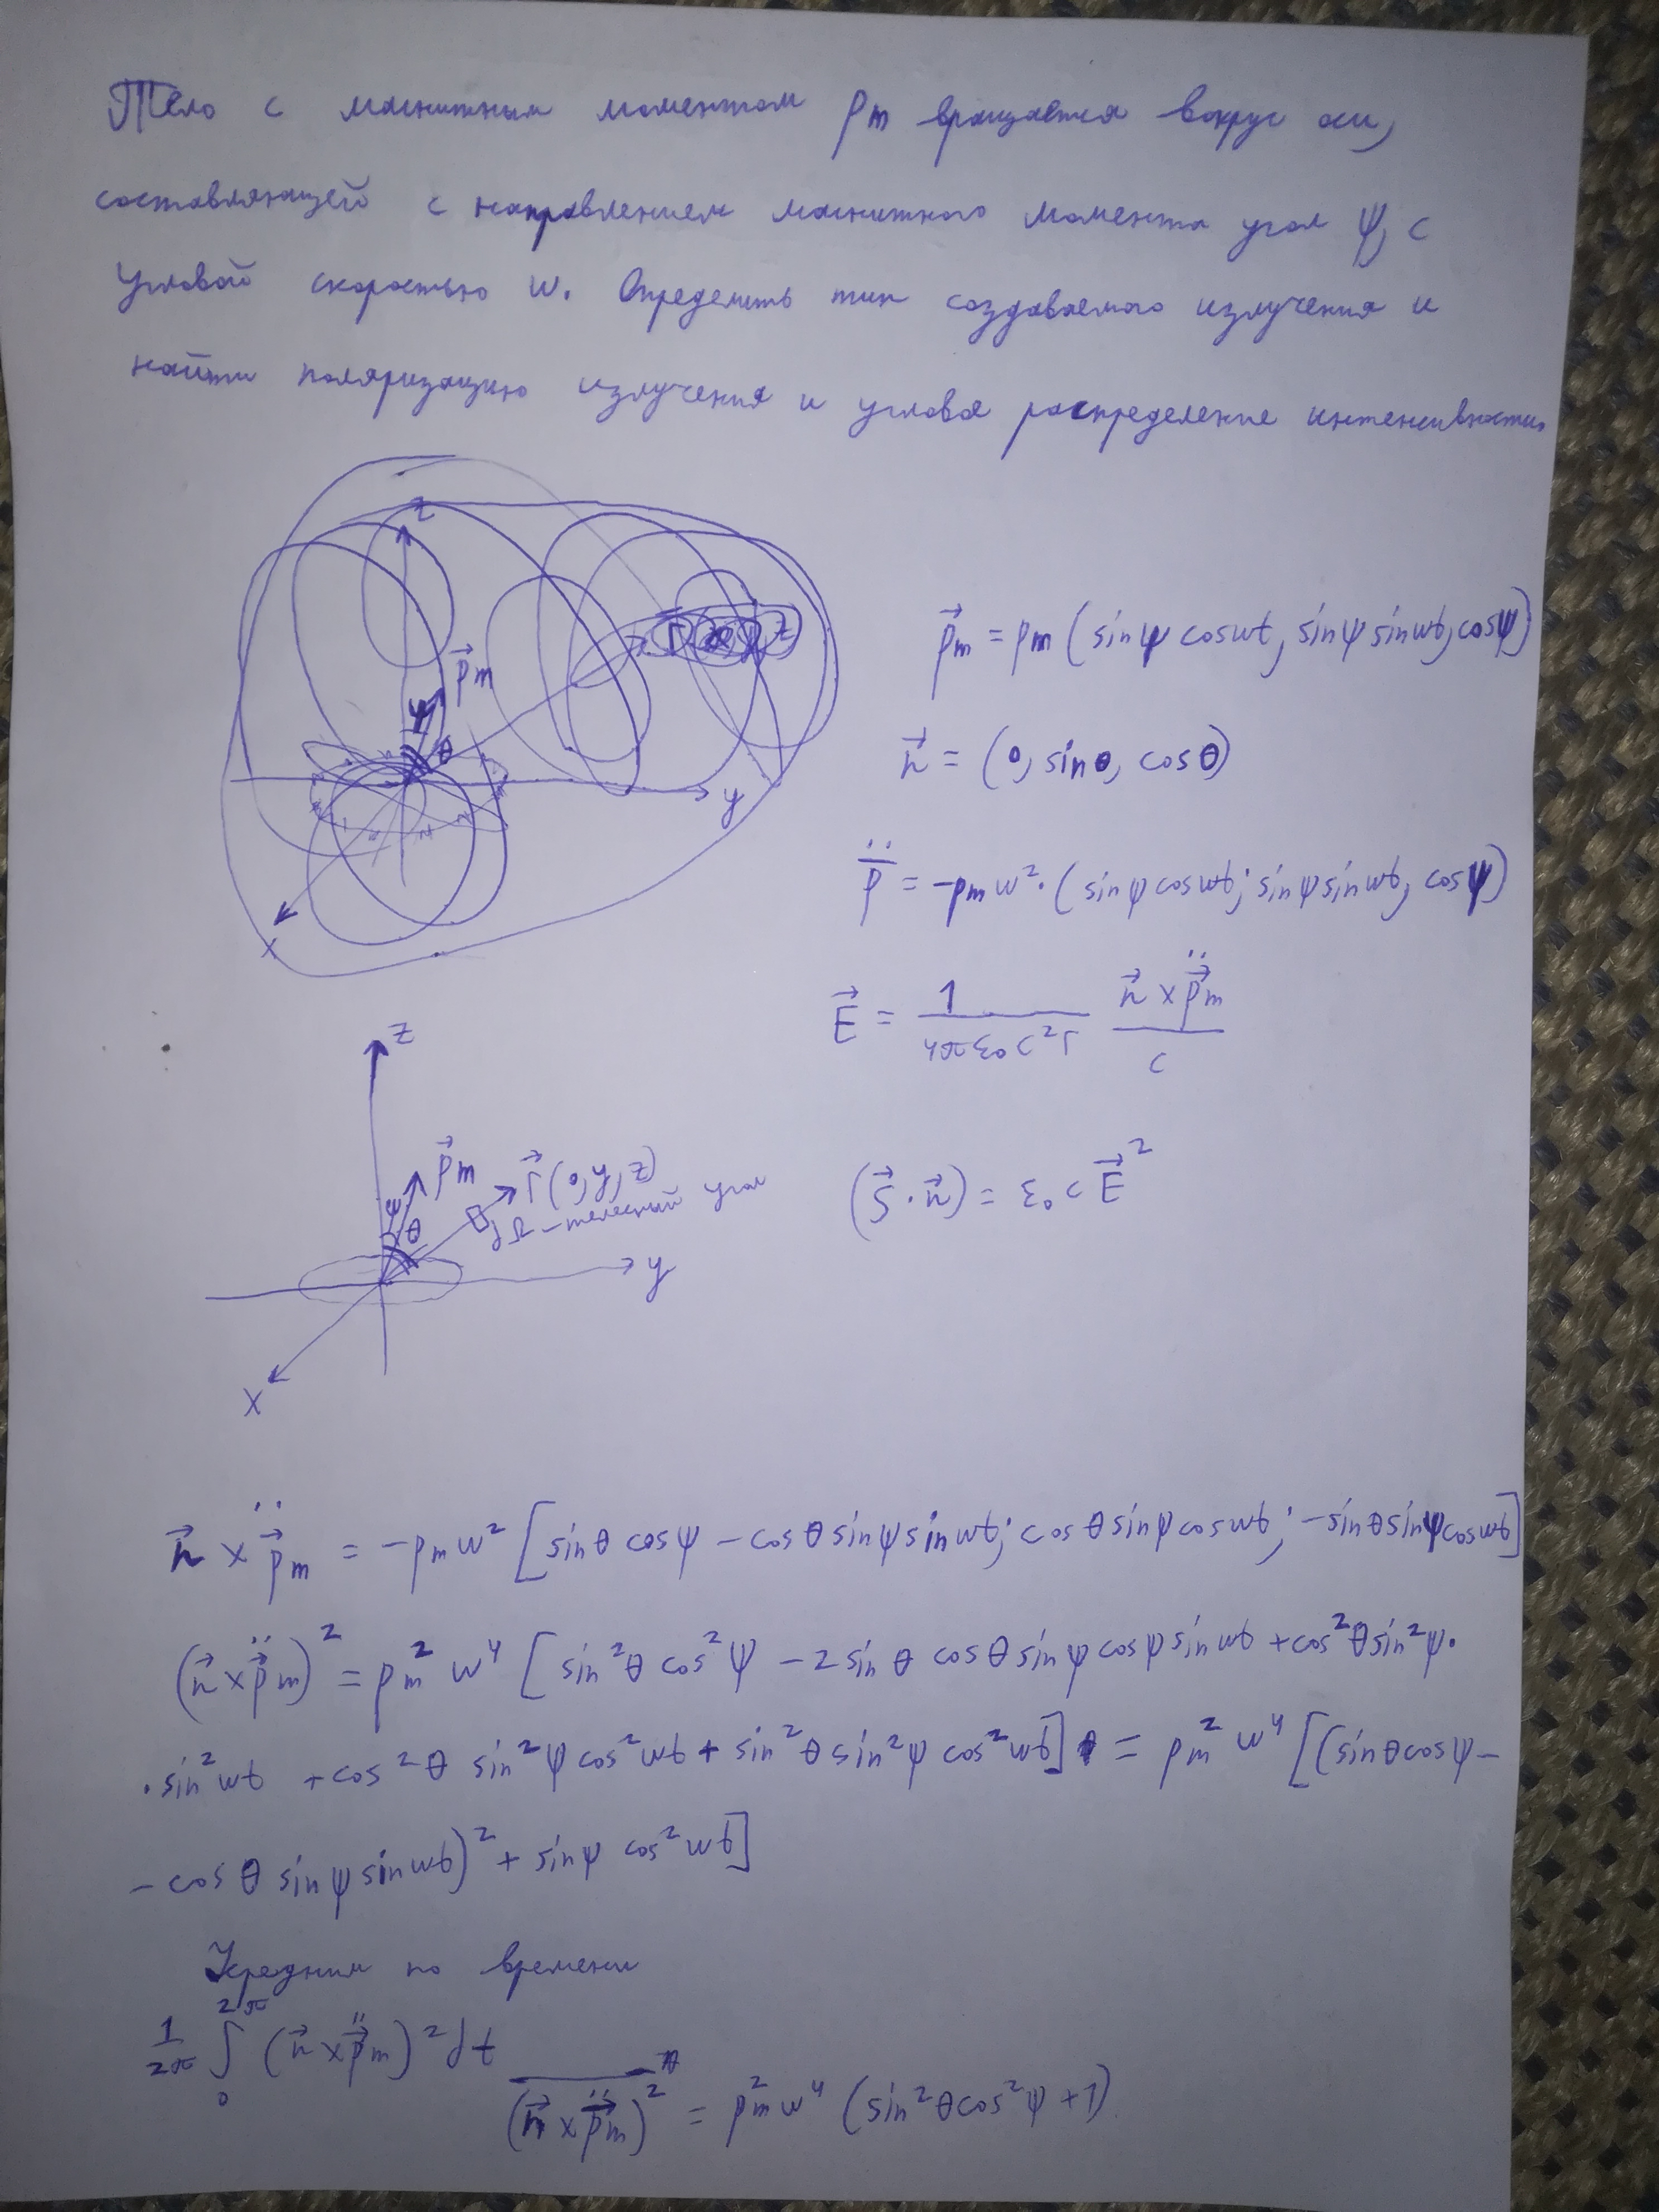 Тело с магнитным моментом pm вращается вокруг оси,
составляющей с направлением магнитного момента угол ψ, с
угловой скоростью w. Определить тип создаваемого излучения и
найти поляризацию излучения и угловое распределение интенсивности.
z
p⃗m
ψ
θ
y
x
p⃗m = pm (sinψ coswt, sinψ sinwt, cosψ)
n⃗ = (0, sinθ, cosθ)
p̈ = -pm w²·(sinψ coswt; sinψ sinwt, cosψ)
E⃗ = 1/(4πε₀c²r) (n⃗ × p̈⃗m)/c
(S⃗·n⃗) = ε₀ c E⃗²
z
p⃗m
r⃗(0, y, z)
dΩ - телесный угол
ψ
θ
y
x
n⃗ × p̈⃗m = -pm w² [sinθ cosψ - cosθ sinψ sinwt; cosθ sinψ coswt; -sinθ sinψ coswt]
(n⃗ × p̈⃗m)² = pm² w⁴ [sin²θ cos²ψ - 2 sinθ cosθ sinψ cosψ sinwt + cos²θ sin²ψ·
· sin²wt + cos²θ sin²ψ cos²wt + sin²θ sin²ψ cos²wt] = pm² w⁴ [(sinθ cosψ -
- cosθ sinψ sinwt)² + sinψ cos²wt]
Усредним по времени
1/2π ∫₀^2π (n⃗ × p̈⃗m)² dt
(n⃗ × p̈⃗m)² = pm² w⁴ (sin²θ cos²ψ + 1)